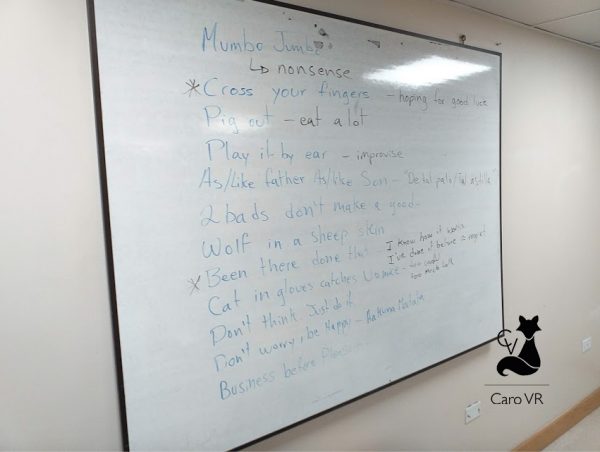 Mumbo Jumbo
↳ nonsense
* Cross your fingers - hoping for good luck
Pig out - eat a lot
Play it by ear - improvise
As/like father As/like Son - "De tal palo/Tal astilla"
2 bads don't make a good
Wolf in a sheep skin
* Been there done that - I know how it works
I've done it before
Cat in gloves catches no mice - too careful
too much talk
Don't think Just do it
Don't worry, be Happy - Hakuna Matata
Business before Pleasure
CV
Caro VR